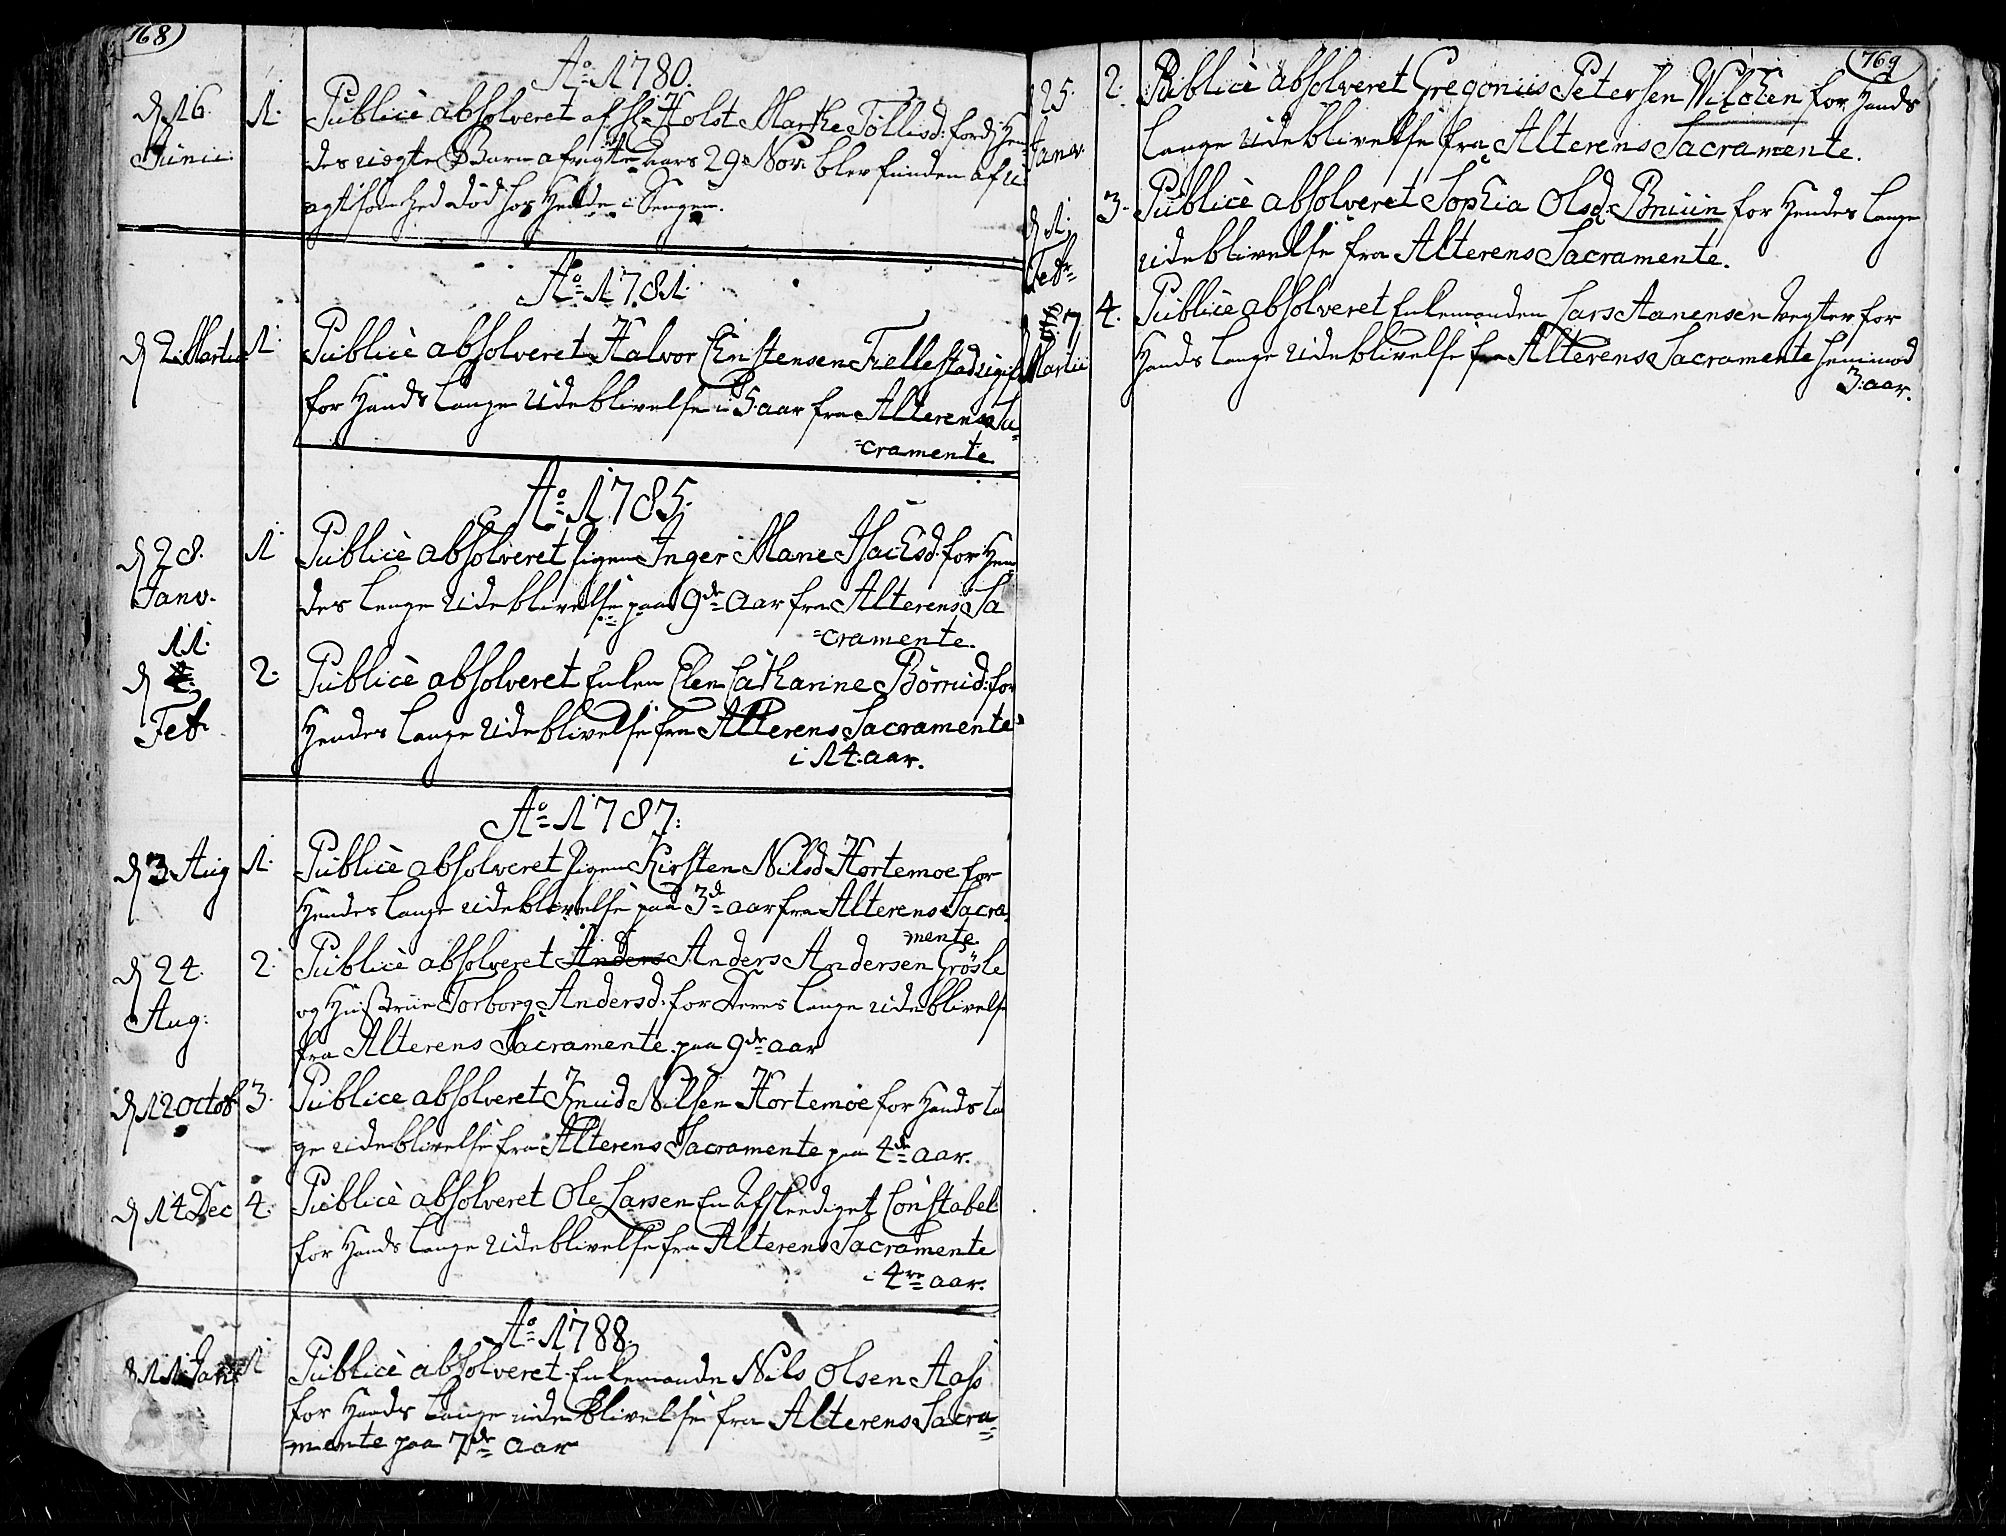 768
Aº 1780.
d 16. Junii
1. Publicè absolveret af Hr Holst Marthe Tøllisd: fordj Hen
des uægte Barn afvigte Aars 29 Nov: blev funden af u
agtsomhed død hos Hende i Sengen.
Aº 1781.
d 2 Martii 1. Publicè absolveret Halvor Christensen Fiellestad
for Hands Lange Udeblivelse i 5. aar fra Alterens Sa=
=cramente
Aº 1785.
d 28. Janv. 1. Publicè absolveret Pigen Inger Marie Isachsd: for Hen
des Lange Udeblivelse paa 9de Aar fra Alterens Sa
=cramente.
d 11. Feb. 2. Publicè absolveret Enken Elen Catharine for
Hendes Lange Udeblivelse fra Alterens Sacramente
i 14. aar.
Aº 1787.
d 3 Aug 1. Publicè absolveret Pigen Kirsten Nilsd Hortemoe for
Hendes Lange udeblivelse paa 3de aar fra Alterens Sacra-
mente
d 24. Aug: 2. Publicè absolveret Anders Anders Andersen Grösle
og Hustrue Torborg Andersd: for Deres Lange udeblivelse
fra Alterens Sacramente paa 9de aar
d 12 Octob 3. Publice absolveret Knud Nilsen Hortemoe for Hands La
ge udeblivelse fra Alterens Sacramente paa 4de aar.
d 14 Dec 4. Publicè absolveret Ole Larsen En Afskeediget Constabel
for Hands Lange Udeblivelse fra Alterens Sacramente
i 4re aar.
Aº 1788.
d 11 Janv 1 Publicè absolveret Enkemanden Nils Olsen Aass
for Hands Lange udeblivelse fra Alterens Sacra=
=mente paa 7de aar
769
d 25. Janv. 2. Publicè absolveret Gregorius Petersen Vilchen for Hands
Lange Udeblivelse fra Alterens Sacramente.
d 1. Feb. 3. Publicè absolveret Sophia Olsd: Bruun for Hendes Lange
udeblivelse fra Alterens Sacramente.
d 7 Martii 4. Publicè absolveret Enkemanden Lars Aanensen Vegter for
Hands Lange Udeblivelse fra Alterens Sacramente henimod
3. aar.